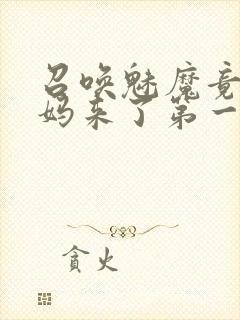 召唤魅魔竟
妈来了第一
贪火